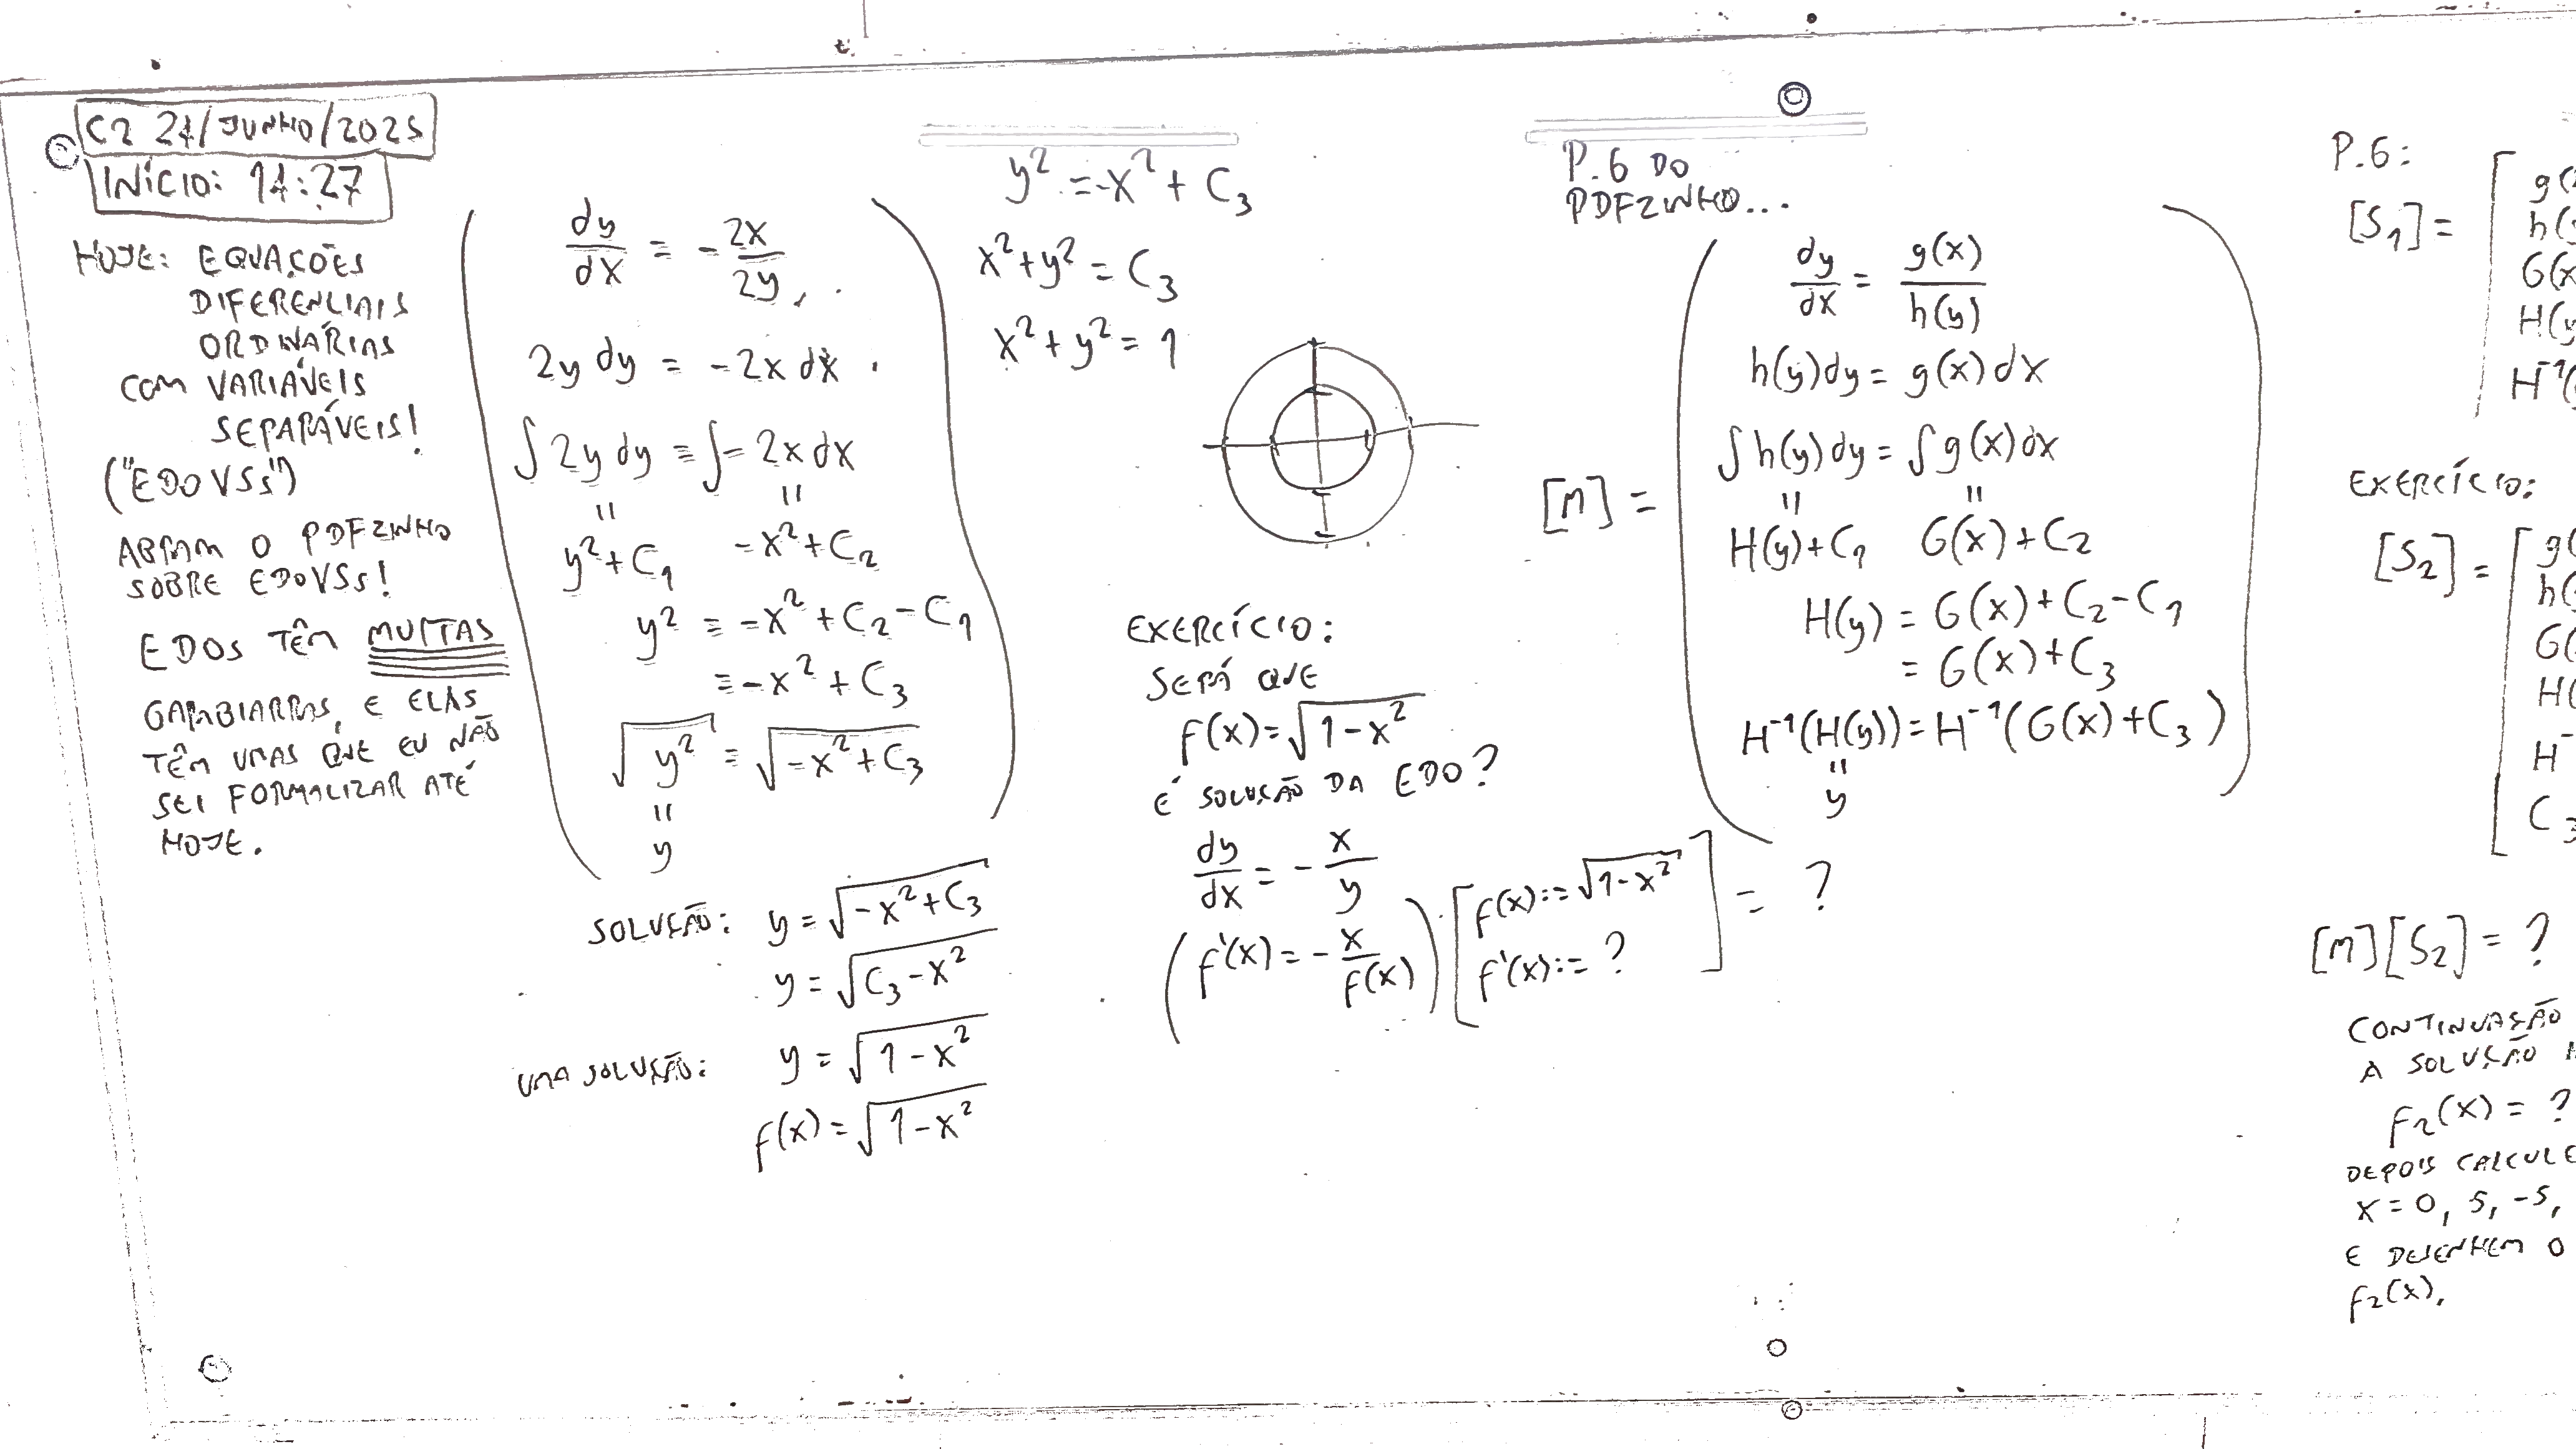 C2 24/JUNHO/2025
INÍCIO: 14:27
HOJE: EQUAÇÕES
DIFERENCIAIS
ORDINÁRIAS
COM VARIÁVEIS
SEPARÁVEIS!
("EDOVSs")
ABRAM O PDFZINHO
SOBRE EDOVSs!
EDOS TÊM MUITAS
GAMBIARRAS, E ELAS
TÊM UMAS QUE EU NÃO
SEI FORMALIZAR ATÉ
HOJE.
dy/dx = - 2x/2y
2y dy = -2x dx
∫2y dy = ∫-2x dx
" "
y²+C₁ -x²+C₂
y² = -x²+C₂-C₁
= -x²+C₃
√y² = √-x²+C₃
"
y
SOLUÇÃO: y = √-x²+C₃
y = √C₃-x²
UMA SOLUÇÃO: y = √1-x²
f(x) = √1-x²
y² = -x²+C₃
x²+y² = C₃
x²+y² = 1
EXERCÍCIO:
SERÁ QUE
f(x)=√1-x²
É SOLUÇÃO DA EDO?
dy/dx = - x/y
(f'(x) = - x/f(x)) [f(x):=√1-x²
f'(x):= ?] = ?
P.6 DO
PDFZINHO...
[M] =
dy/dx = g(x)/h(y)
h(y)dy = g(x)dx
∫h(y)dy = ∫g(x)dx
" "
H(y)+C₁ G(x)+C₂
H(y) = G(x)+C₂-C₁
= G(x)+C₃
H⁻¹(H(y)) = H⁻¹(G(x)+C₃)
"
y
P.6:
[S₁] =
EXERCÍCIO:
[S₂] =
[M][S₂] = ?
CONTINUAÇÃO
A SOLUÇÃO
f₂(x) = ?
DEPOIS CALCULE
x = 0, 5, -5,
E DESENHEM O
f₂(x).